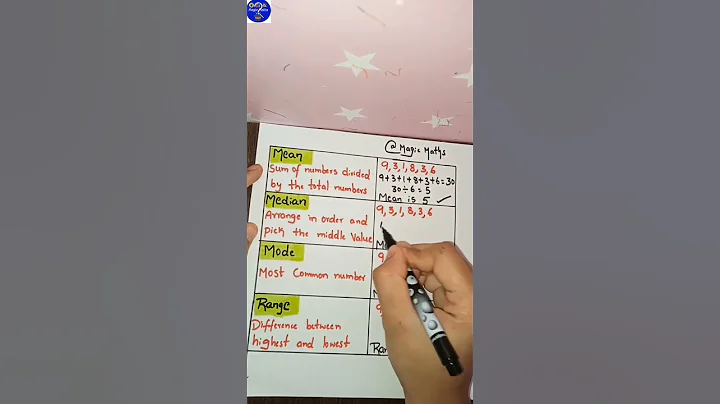 @Magic Maths
Mean
Sum of numbers divided
by the total numbers
9,3,1,8,3,6
9+3+1+8+3+6=30
30÷6=5
Mean is 5 ✓
Median
Arrange in order and
pick the middle Value
9,3,1,8,3,6
Mode
Most Common number
9,
Range
Difference between
highest and lowest